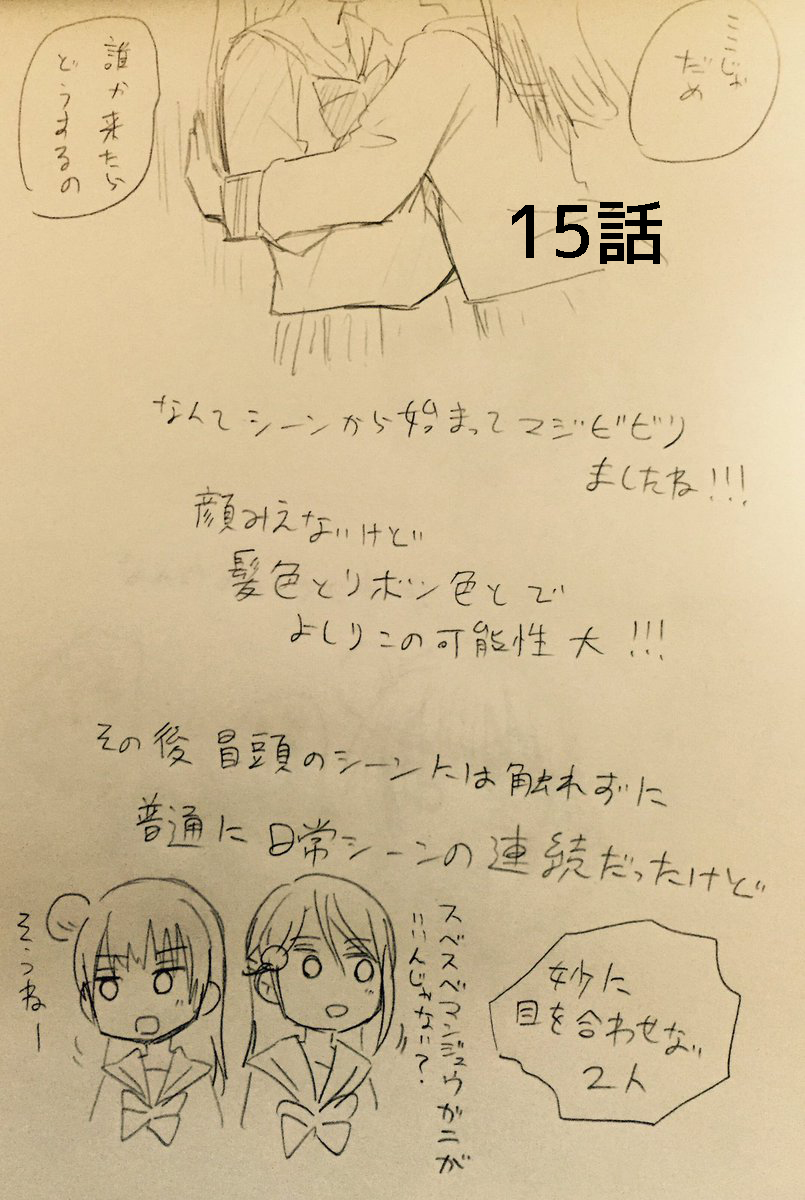 ここじゃ
だめ
誰か来たら
どうするの
15話
なんてシーンから始まってマジビビリ
ましたね!!!
顔みえないけど
髪色とリボン色とで
よしりこの可能性大!!!
その後冒頭のシーンには触れずに
普通に日常シーンの連続だったけど
妙に
目を合わせない
2人
スベスベマンジュウガニが
いいんじゃない?
そうねー